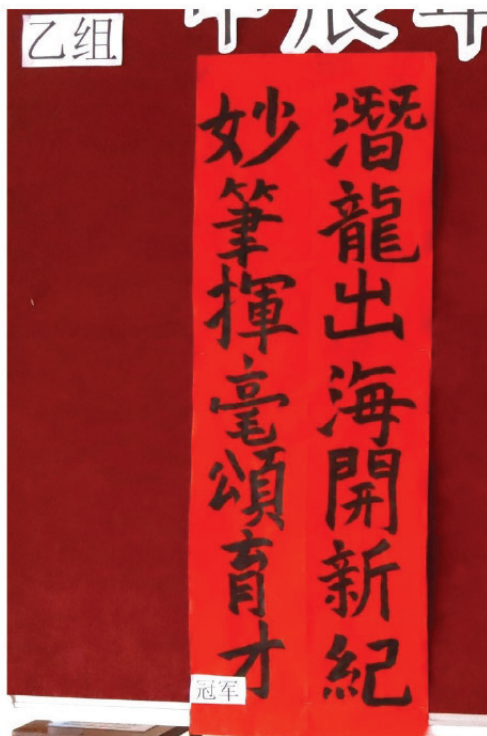 甲辰年
乙组
潛龍出海開新紀
妙筆揮毫頌育才
冠军